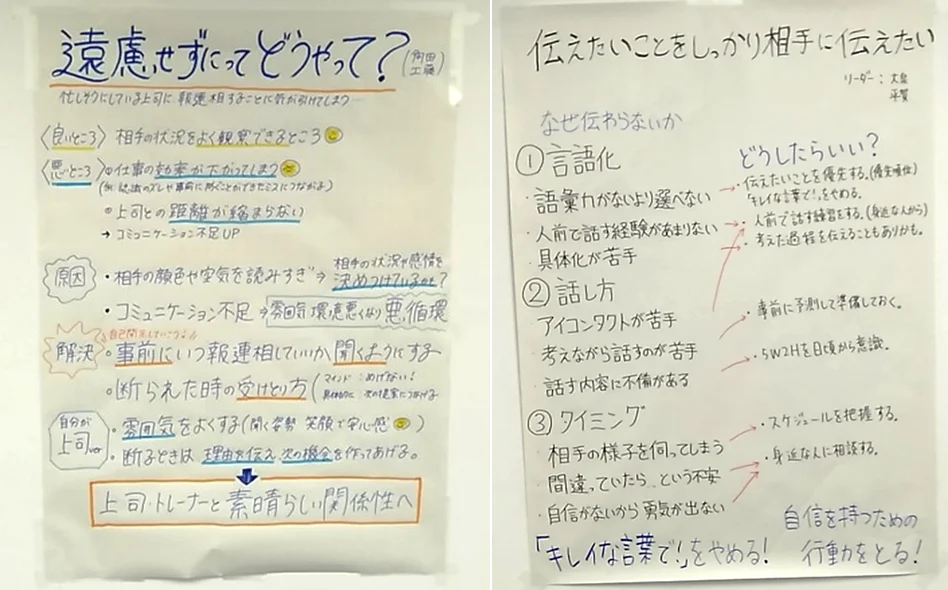 遠慮せずにってどうやって?
(角田 工藤)
忙しそうにしている上司に報連相することに気が引けてしまう…
〈良いところ〉 相手の状況をよく観察できるところ
〈悪いところ〉 ◎仕事の効率が下がってしまう
◎上司との距離が縮まらない
→ コミュニケーション不足UP
原因 ・相手の顔色や空気を読みすぎ⇒ 相手の状況や感情を決めつけているかも?
・コミュニケーション不足⇒雰囲気環境悪くなり悪循環
解決 ・事前にいつ報連相していいか聞くようにする
◎断られた時の受けとり方 (マインド:めげない!
自分が上司ver ・雰囲気をよくする(聞く姿勢 笑顔で安心感 )
・断るときは理由を伝え次の機会を作ってあげる。
上司・トレーナーと素晴らしい関係性へ
伝えたいことをしっかり相手に伝えたい
リーダー:
平賀
なぜ伝わらないか
① 言語化
・語彙力がないより選べない
・人前で話す経験があまりない
・具体化が苦手
② 話し方
アイコンタクトが苦手
・考えながら話すのが苦手
・話す内容に不備がある
③ タイミング
・相手の様子を伺ってしまう
・間違っていたら…という不安
・自信がないから勇気が出ない
どうしたらいい?
・伝えたいことを優先する。(優先順位)
「キレイな言葉で!」をやめる。
・人前で話す練習をする。(身近な人から)
・考えた過程を伝えることもありかも。
・事前に予測して準備しておく。
・5W2Hを日頃から意識。
・スケジュールを把握する。
・身近な人に相談する。
「キレイな言葉で!」をやめる!
自信を持つための
行動をとる!